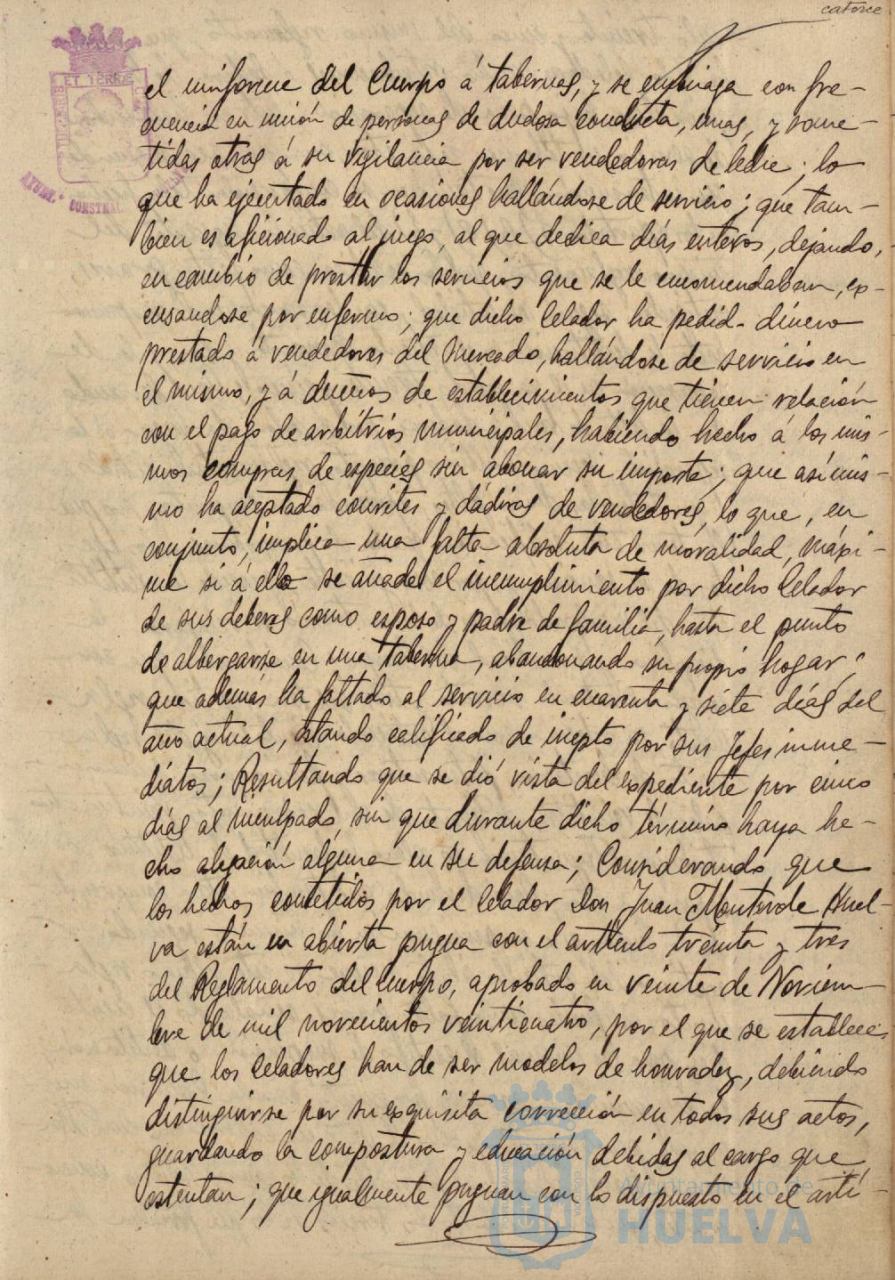 catorce
el uniforme del Cuerpo á tabernas, y se embriaga con fre-
cuencia en unión de personas de dudosa conducta, unas, y some-
tidas otras á su vigilancia por ser vendedoras de leche; lo
que ha ejecutado en ocasiones hallándose de servicio; que tam-
bien es aficionado al juego, al que dedica días enteros, dejando,
en cambio de prestar los servicios que se le encomendaban, ex-
cusandose por enfermo; que dicho Celador ha pedido dinero
prestado á vendedores del Mercado, hallándose de servicio en
el mismo, y á dueños de establecimientos que tienen relación
con el pago de arbitrios municipales, habiendo hecho á los mis-
mos compras de especies sin abonar su importe; que asimis-
mo ha aceptado convites y dádivas de vendedores, lo que, en
conjunto, implica una falta absoluta de moralidad, máxi-
me si á ello se añade el incumplimiento por dicho Celador
de sus deberes como esposo y padre de familia, hasta el punto
de albergarse en una taberna, abandonando su propio hogar;
que además ha faltado al servicio en cuarenta y siete días del
año actual, estando calificado de inepto por sus Jefes inme-
diatos; Resultando que se dió vista del expediente por cinco
días al inculpado, sin que durante dicho término haya he-
cho alegación alguna en su defensa; Considerando que
los hechos cometidos por el Celador Don Juan Monteverde Huel-
va están en abierta pugna con el artículo treinta y tres
del Reglamento del Cuerpo, aprobado en veinte de Noviem-
bre de mil novecientos veinticuatro, por el que se establece
que los Celadores han de ser modelos de honradez, debiendo
distinguirse por su exquisita corrección en todos sus actos,
guardando la compostura y educación debidas al cargo que
ostentan; que igualmente pugnan con lo dispuesto en el artí-
Ayuntamiento de
HUELVA